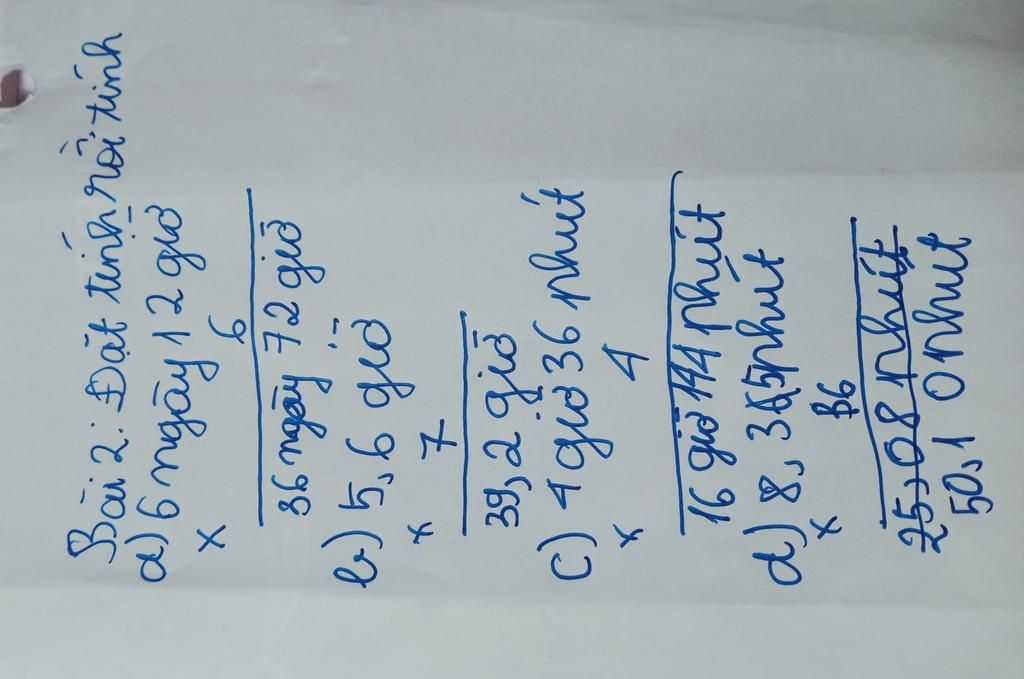 Bài 2: Đặt tính rồi tính
a) 6 ngày 12 giờ
x 6
36 ngày 72 giờ
b) 5,6 giờ
x 7
39,2 giờ
c) 4 giờ 36 phút
x 4
16 giờ 144 phút
d) 8,35 phút
x 6
25,08 phút
50,10 phut